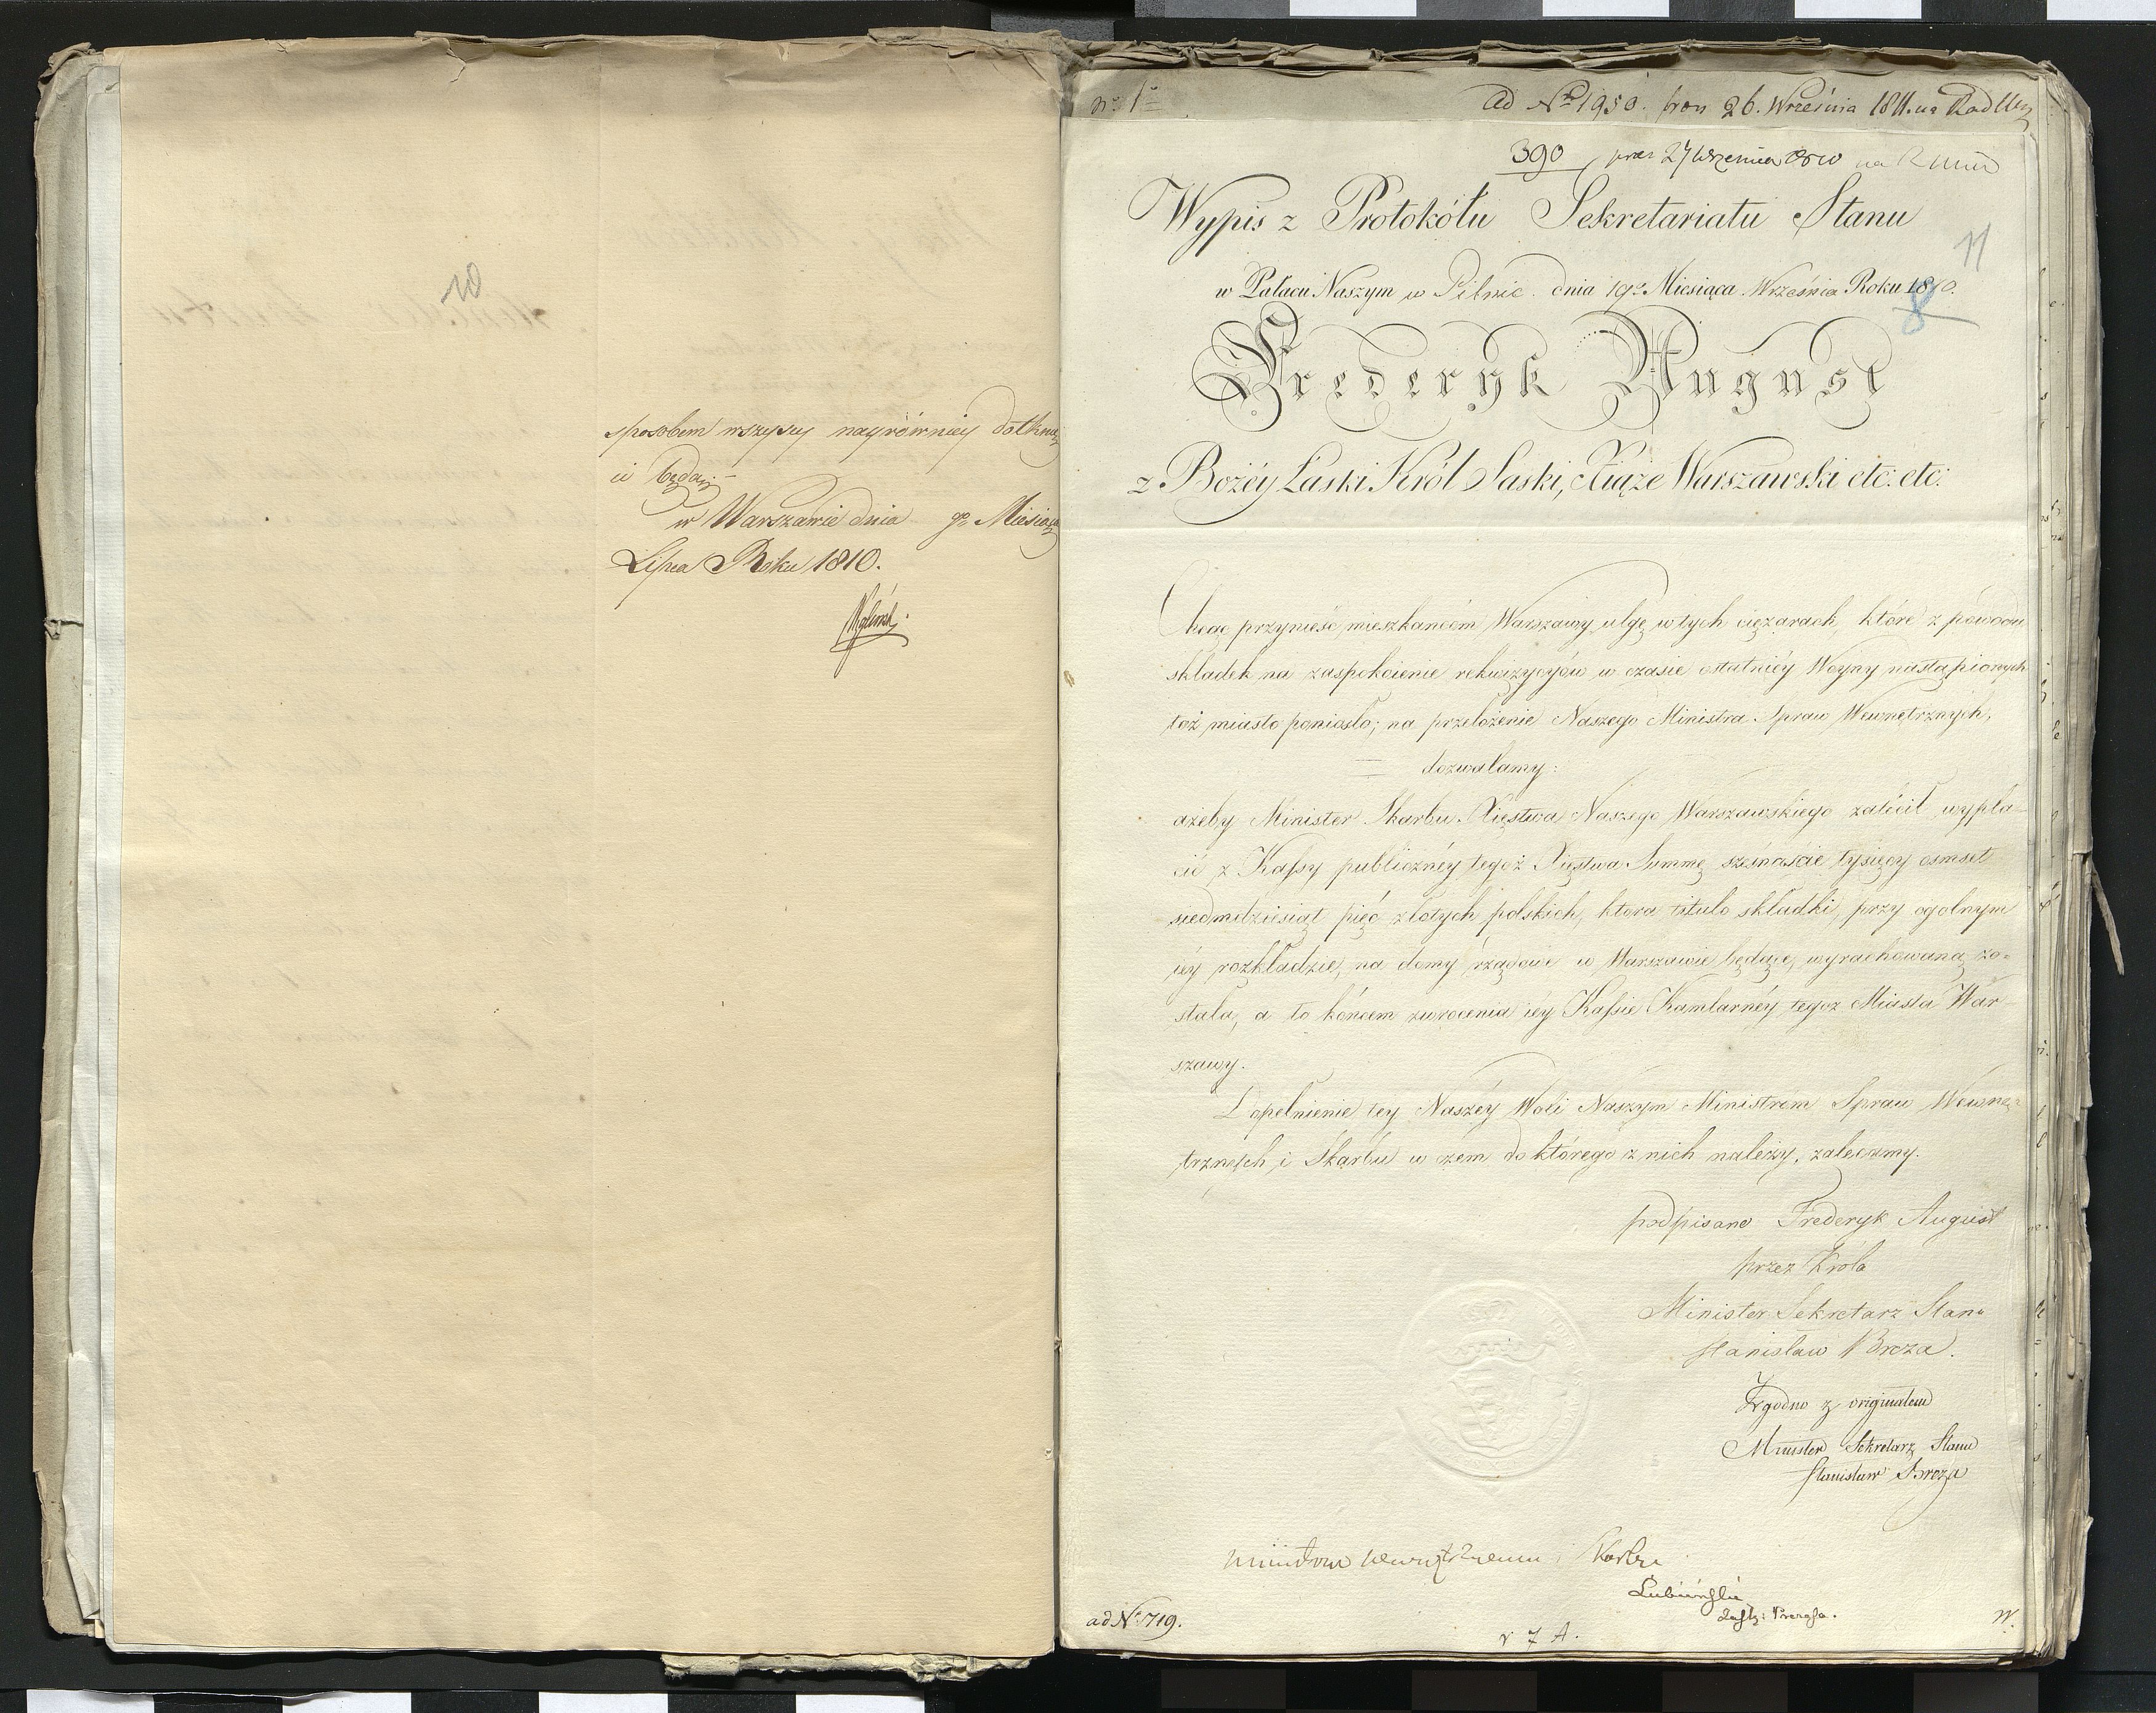 10
sposobem wszyscy nayrówniey dotknię
ci będą.
w Warszawie dnia 9º Miesiąca
Lipca Roku 1810.
No 1º
ad No 1950. pron 26. Września 1811. na Rad
390 prae 27 Września 1810 na
Wypis z Protokółu Sekretariatu Stanu
11
w Pałacu Naszym w Pilnic. dnia 19º Miesiąca Września Roku 1810.
8
Frederyk August
z Bożéy Łaski Król Saski, Xiąże Warszawski etc: etc:
Chcąc przynieść mieszkańcom Warszawy ulgę w tych ciężarach, które z powodu
składek na zaspokoienie rekwizycyów w czasie ostatniéy Woyny nastąpionych
toż miasto poniosło; na przełożenie Naszego Ministra Spraw Wewnętrznych,
dozwalamy:
ażeby Minister Skarbu Xięstwa Naszego Warszawskiego zalécił wypła-
cić z Kassy publicznéy tegoż Xięstwa Summę szesnaście tysięcy osmset
siedmdziesiąt pięć złotych polskich, ktora titulo składki, przy ogolnym
iéy rozkładzie, na domy rządowe w Warszawie będące, wyrachowaną zo-
stała, a to końcem zwrócenia iéy Kassie Kamlarnéy tegoż Miasta War-
szawy.
Dopełnienie téy Naszéy Woli Naszym Ministróm Spraw Wewnę-
trznych i Skarbu w czém do którego z nich należy, zalecamy.
podpisano Frederyk August
przez Króla
Minister Sekretarz Stanu
Stanisław Breza.
Zgodno z originałem
Minister Sekretarz Stanu
Stanisław Breza
Ministrowi Wewnętrznemu i Skarbu
Łubieński
Zastę: Prezesa.
ad No 1719.